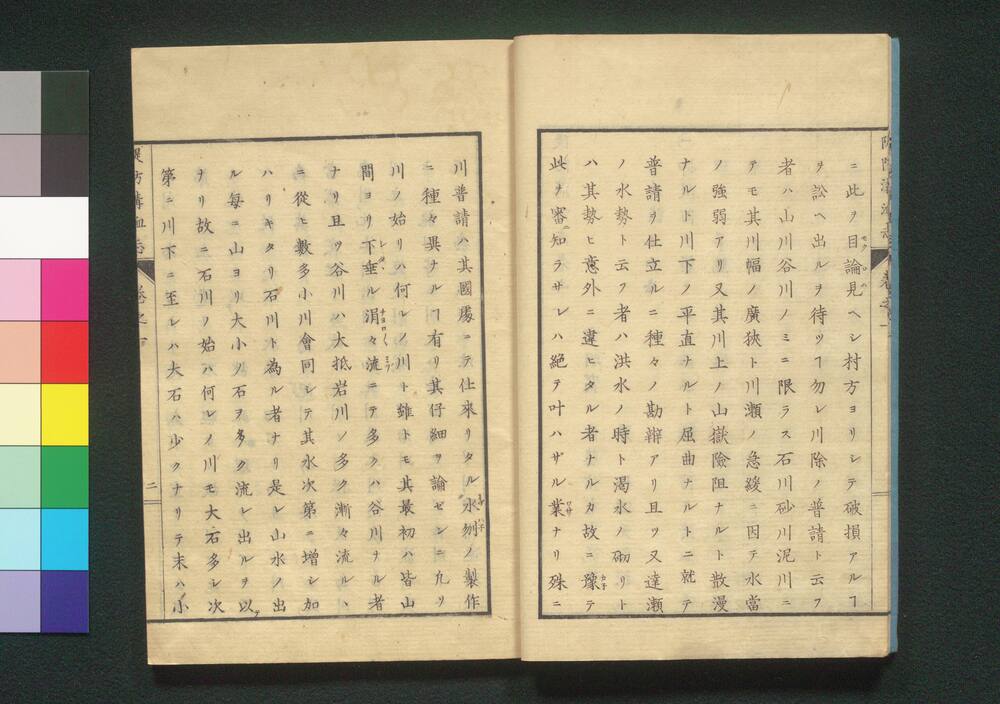 ニ此ヲ目論見ヘシ村方ヨリシテ破損アルヿ
ヲ訟ヘ出ルヲ待ツヿ勿レ川除ノ普請ト云フ
者ハ山川谷川ノミニ限ラス石川砂川泥川ニ
テモ其川幅ノ廣狹ト川瀬ノ急緩ニ因テ水當
ノ強弱アリ又其川上ノ山嶽險阻ナルト散漫
ナルト川下ノ平直ナルト屈曲ナルトニ就テ
普請ヲ仕立ルニ種々ノ勘辨アリ且ツ又達瀬
ノ水勢ト云フ者ハ洪水ノ時ト渇水ノ砌リト
ハ其勢ヒ意外ニ違ヒタル者ナルカ故ニ豫テ
此ヲ審知ラザレハ絶テ叶ハザル業ナリ殊ニ
川普請ハ其國處ニテ仕來リタル水刎ノ製作
ニ種々異ナルヿ有リ其仔細ヲ論センニ九リ
川ノ始リハ何レノ川ト雖トモ其最初ハ皆山
間ヨリ下垂ル涓々流ニテ多クハ谷川ナル者
ナリ且ツ谷川ハ大抵岩川ノ多ク漸々流ル丶
ニ從ヒ數多小川會同シテ其水次第ニ増シ加
ハリキタリ石川ト為ル者ナリ是レ山水ノ出
ル毎ニ山ヨリ大小ノ石ヲ多ク流レ出ルヲ以
ナリ故ニ石川ノ始ハ何レノ川モ大石多シ次
第ニ川下ニ至レハ大石ハ少クナリテ末ハ小
二